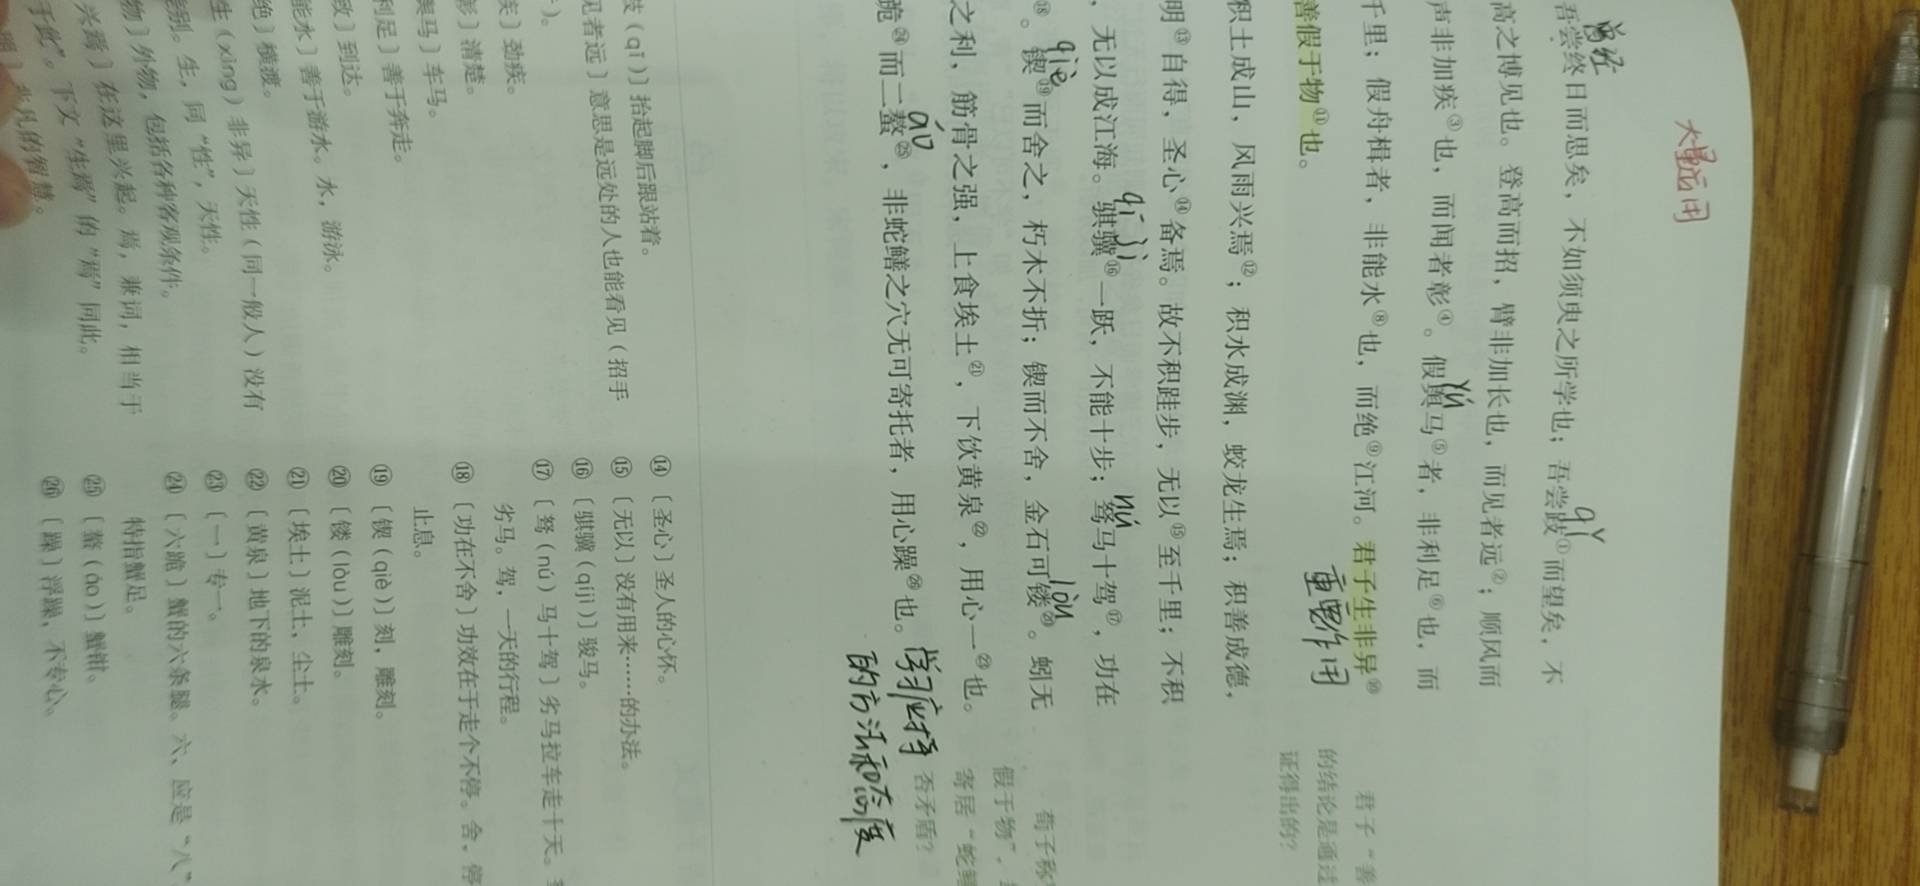 大量运用
曾经
吾尝终日而思矣，不如须臾之所学也；吾尝跂①而望矣，不
qǐ
高之博见也。登高而招，臂非加长也，而见者远②；顺风而
声非加疾③也，而闻者彰④。假舆马⑤者，非利足⑥也，而
yú
千里；假舟楫者，非能水⑧也，而绝⑨江河。君子生非异⑩
善假于物⑪也。
重要作用
积土成山，风雨兴焉⑫；积水成渊，蛟龙生焉；积善成德，
明⑬自得，圣心⑭备焉。故不积跬步，无以⑮至千里；不积
，无以成江海。骐骥⑯一跃，不能十步；驽马十驾⑰，功在
qí jì
nú
⑱。锲⑲而舍之，朽木不折；锲而不舍，金石可镂⑳。蚓无
qiè
lòu
之利，筋骨之强，上食埃土㉑，下饮黄泉㉒，用心一㉓也。
跪㉔而二螯㉕，非蛇鳝之穴无可寄托者，用心躁㉖也。
áo
学习应持
的方法和态度
君子“善
的结论是通过
证得出的？
荀子称
假于物”，
寄居“蛇鳝
否矛盾？
跂（qǐ）〕抬起脚后跟站着。
见者远〕意思是远处的人也能看见（招手
）。
疾〕劲疾。
彰〕清楚。
舆马〕车马。
利足〕善于奔走。
致〕到达。
能水〕善于游水。水，游泳。
绝〕横渡。
生（xìng）非异〕天性（同一般人）没有
差别。生，同“性”，天性。
物〕外物，包括各种客观条件。
兴焉〕在这里兴起。焉，兼词，相当于
于此”。下文“生焉”的“焉”同此。
明〕非凡的智慧。
⑭〔圣心〕圣人的心怀。
⑮〔无以〕没有用来……的办法。
⑯〔骐骥（qíjì）〕骏马。
⑰〔驽（nú）马十驾〕劣马拉车走十天。
劣马。驾，一天的行程。
⑱〔功在不舍〕功效在于走个不停。舍，停
止息。
⑲〔锲（qiè）〕刻，雕刻。
⑳〔镂（lòu）〕雕刻。
㉑〔埃土〕泥土，尘土。
㉒〔黄泉〕地下的泉水。
㉓〔一〕专一。
㉔〔六跪〕蟹的六条腿。六，应是“八”
特指蟹足。
㉕〔螯（áo）〕蟹钳。
㉖〔躁〕浮躁，不专心。